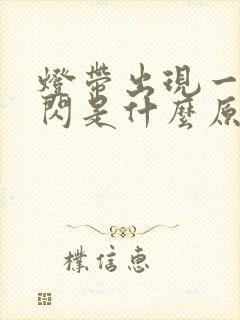 燈帶出現一
閃是什麼原
樸信惠